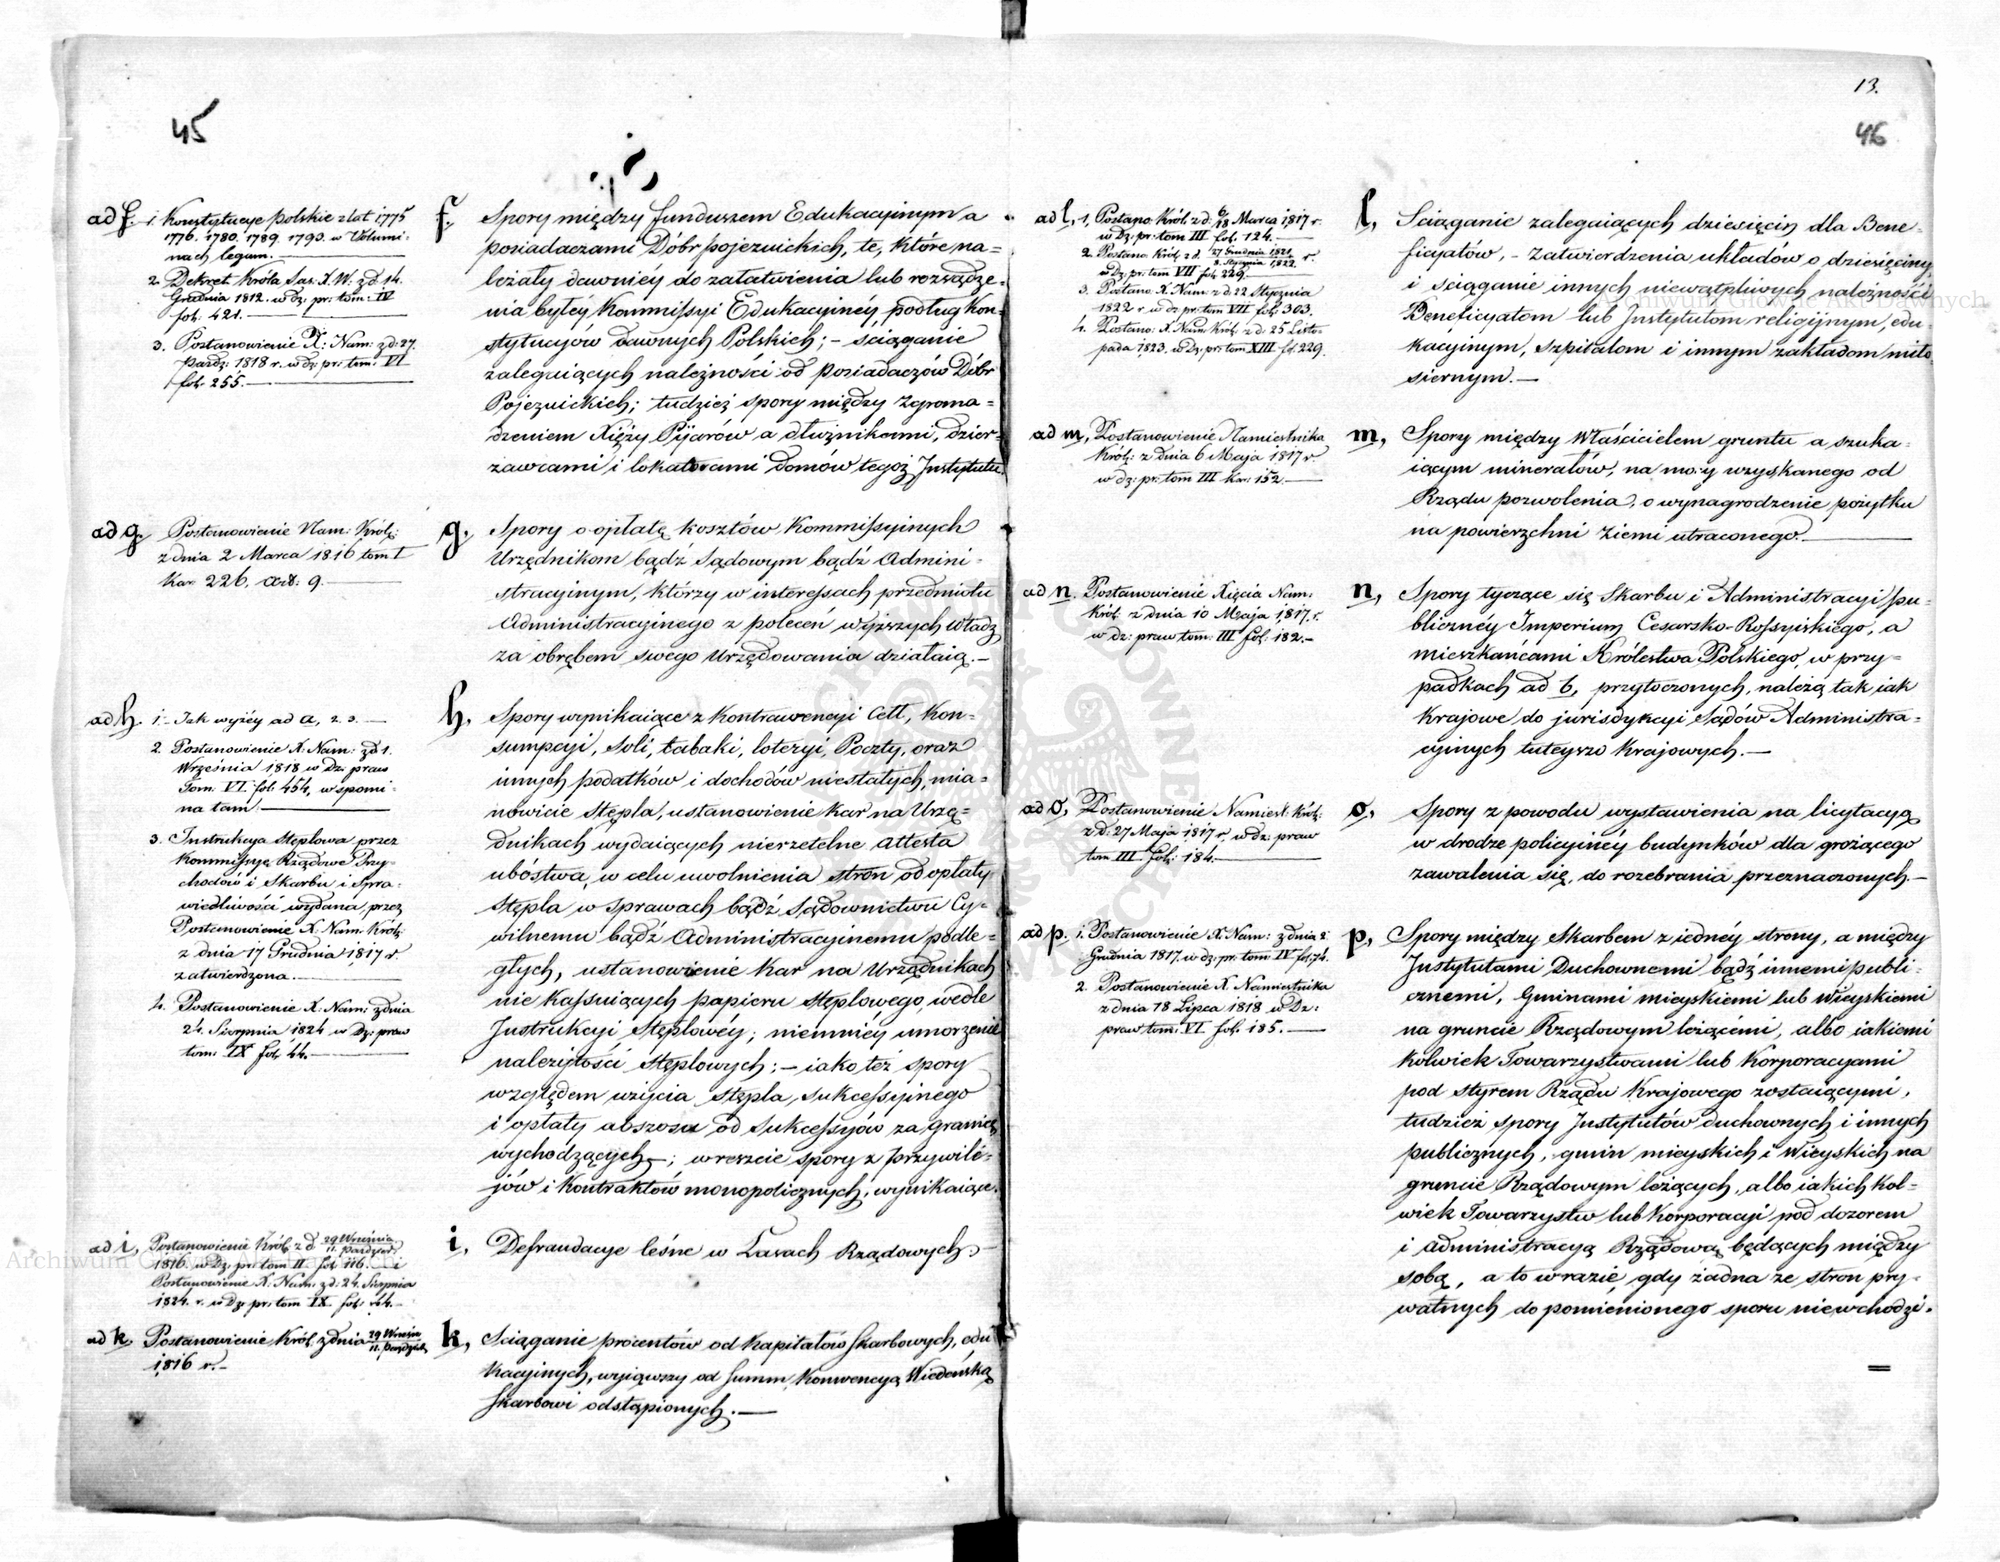 45
ad f. 1. Konstytucye polskie z lat 1775
1776. 1780. 1789. 1793. w Volumi-
nach legum.
2. Dekret Króla Sas: X. W. z d. 14.
Grudnia 1812. w dz: pr: tom: IV
fol. 421.
3. Postanowienie X: Nam: z d: 27.
Paźdz: 1818 r. w dz: pr: tom: VI
fol. 255.
f. Spory między funduszem Edukacyinym a
posiadaczami Dóbr pojezuickich, te, które na-
leżały dawniéy do załatwienia lub rozsądze-
nia byłéy Kommissyi Edukacyinéy podług Kon-
stytucyów dawnych Polskich; – ściąganie
zaleguiących należności od posiadaczów Dóbr
Pojezuickich; tudzież spory między Zgroma-
dzeniem Xięży Pijarów a dłużnikami, dzier-
zawcami i lokatorami domów tegoż Instytutu.
ad g. Postanowienie Nam: Król:
z dnia 2 Marca 1816 tom I
Kar. 226. art: 9.
g. Spory o opłatę kosztów Kommissyinych
Urzędnikom bądź Sądowym bądź Admini-
stracyinym, którzy w interessach przedmiotu
Administracyinego z poleceń wyższych Władz
za obrębem swego Urzędowania działaią. –
ad h. 1. Jak wyżéy ad a, 2. 3.
2. Postanowienie X: Nam: z d 1.
Września 1818 w Dz: praw
Tom. VI. fol. 454, w spomi-
na tam
3. Instrukcya Stęplowa przez
Kommissyą Rządowe Przy-
chodów i Skarbu i Spra-
wiedliwości wydana, przez
Postanowienie X: Nam. Król:
z dnia 17 Grudnia 1817 r.
zatwierdzona.
4. Postanowienie X: Nam: z dnia
24. Sierpnia 1824 w Dz: praw
tom: IX fol. 44.
h. Spory wynikaiące z Kontrawencyi Ceł, Kon-
sumpcyi, Soli, tabaki, loteryi, Poczty, oraz
innych podatków i dochodów niestałych, mia-
nowicie Stępla, ustanowienie kar na Urzę-
dnikach wydaiących nierzetelne attesta
ubóstwa, w celu uwolnienia stron od opłaty
Stępla w sprawach bądź Sądownictwu Cy-
wilnemu bądź Administracyinemu podle-
głych, ustanowienie kar na Urzędnikach
nie kassuiących papieru stęplowego, wedle
Instrukcyi Stęplowéy; niemniéy umorzenie
należytości Stęplowych; – iako też spory
względem użycia Stępla, Sukcessyinego
i opłaty abszosu od Sukcessyów za granicę
wychodzących; w reszcie spory z Przywilé-
jów i Kontraktów monopolicznych, wynikaiące.
ad i, Postanowienie Król: z d. 29 Września
11. Paździer:
1816. w Dz: pr: tom II. fol 116. – i
Postanowienie X: Nam: z d: 24. Sierpnia
1824. r. w Dz: pr: tom IX. fol: 44.–
i, Defraudacye leśne w Lasach Rządowych. –
ad k. Postanowienie Król: z dnia 29 Wrześn
11. Paździer:
1816 r. –
k, Sciąganie procentów od Kapitałów Skarbowych, edu
kacyinych, wyiąwszy od Summ, Konwencyą Wiedeńską
Skarbowi odstąpionych. –
13.
46
ad l, 1, Postano: Król: z d: 6/18 Marca 1817 r.
w Dz: pr: tom III fol. 124.
2. Postano: Król: z d. 27 Grudnia 1821
8. Stycznia 1822. r.
w Dz: pr: tom VII fol. 229.
3. Postano: X. Nam: z d: 22 Stycznia
1822 r. w Dz: pr: tom VII. fol: 303.
4. Postano: X. Nam Król: z d: 25 Listo-
pada 1823. w Dz: pr: tom XIII fol. 229.
l, Sciąganie zaleguiących dziesięcin dla Bene-
ficyatów, – zatwierdzenia układów o dziesięciny
i ściąganie innych niewątpliwych należności
Beneficyatom lub Instytutom religijnym, edu-
kacyinym, szpitalom i innym zakładom miło
siernym. –
ad m, Postanowienie Namiestnika
Król: z dnia 6 Maja 1817 r
w dz: pr: tom III Kar: 152.
m, Spory między Właścicielem gruntu a szuka-
iącym minerałów, na mocy uzyskanego od
Rządu pozwolenia, o wynagrodzenie pożytku
na powierzchni ziemi utraconego.
ad n. Postanowienie Xięcia Nam:
Król. z dnia 10 Maja 1817. r.
w dz: praw tom: III fol. 182. –
n, Spory tyczące się Skarbu i Administracyi pu-
bliczney Imperium Cesarsko-Rossyiskiego, a
mieszkańcami Królestwa Polskiego, w przy-
padkach ad b, przytoczonych, należą tak iak
Krajowe do jurisdykcyi Sądów Administra-
cyjnych tuteyszo Krajowych. –
ad o, Postanowienie Namiest: Król:
z d: 27 Maja 1817 r, w dz: praw
tom III. fol: 184.
o, Spory z powodu wystawienia na licytacyą
w drodze policyinéy budynków dla grożącego
zawalenia się, do rozebrania przeznaczonych. –
ad p. 1. Postanowienie X Nam: z dnia 2
Grudnia 1817. w dz. pr: tom IV fol. 74.
2. Postanowienie X. Namiestnika
z dnia 18 Lipca 1818 w Dz:
praw tom: VI fol. 185. –
p, Spory między Skarbem z iednéy strony, a między
Instytutami Duchownemi bądź innemi publi-
cznemi, Gminami mieyskiemi lub Wieyskiemi
na gruncie Rządowym leżącémi, albo iakiemi
kolwiek Towarzystwami lub Korporacyami
pod styrem Rządu Krajowego zostaiącymi,
tudzież spory Instytutów duchownych i innych
publicznych, gmin mieyskich i Wieyskich na
gruncie Rządowym leżących, albo iakich kol-
wiek Towarzystw lub Korporacyi pod dozorem
i administracyą Rządową będących między
sobą, a to w razie, gdy żadna ze stron pry-
watnych do pomienionego sporu nie wchodzi.
Archiwum Główne Akt Dawnych